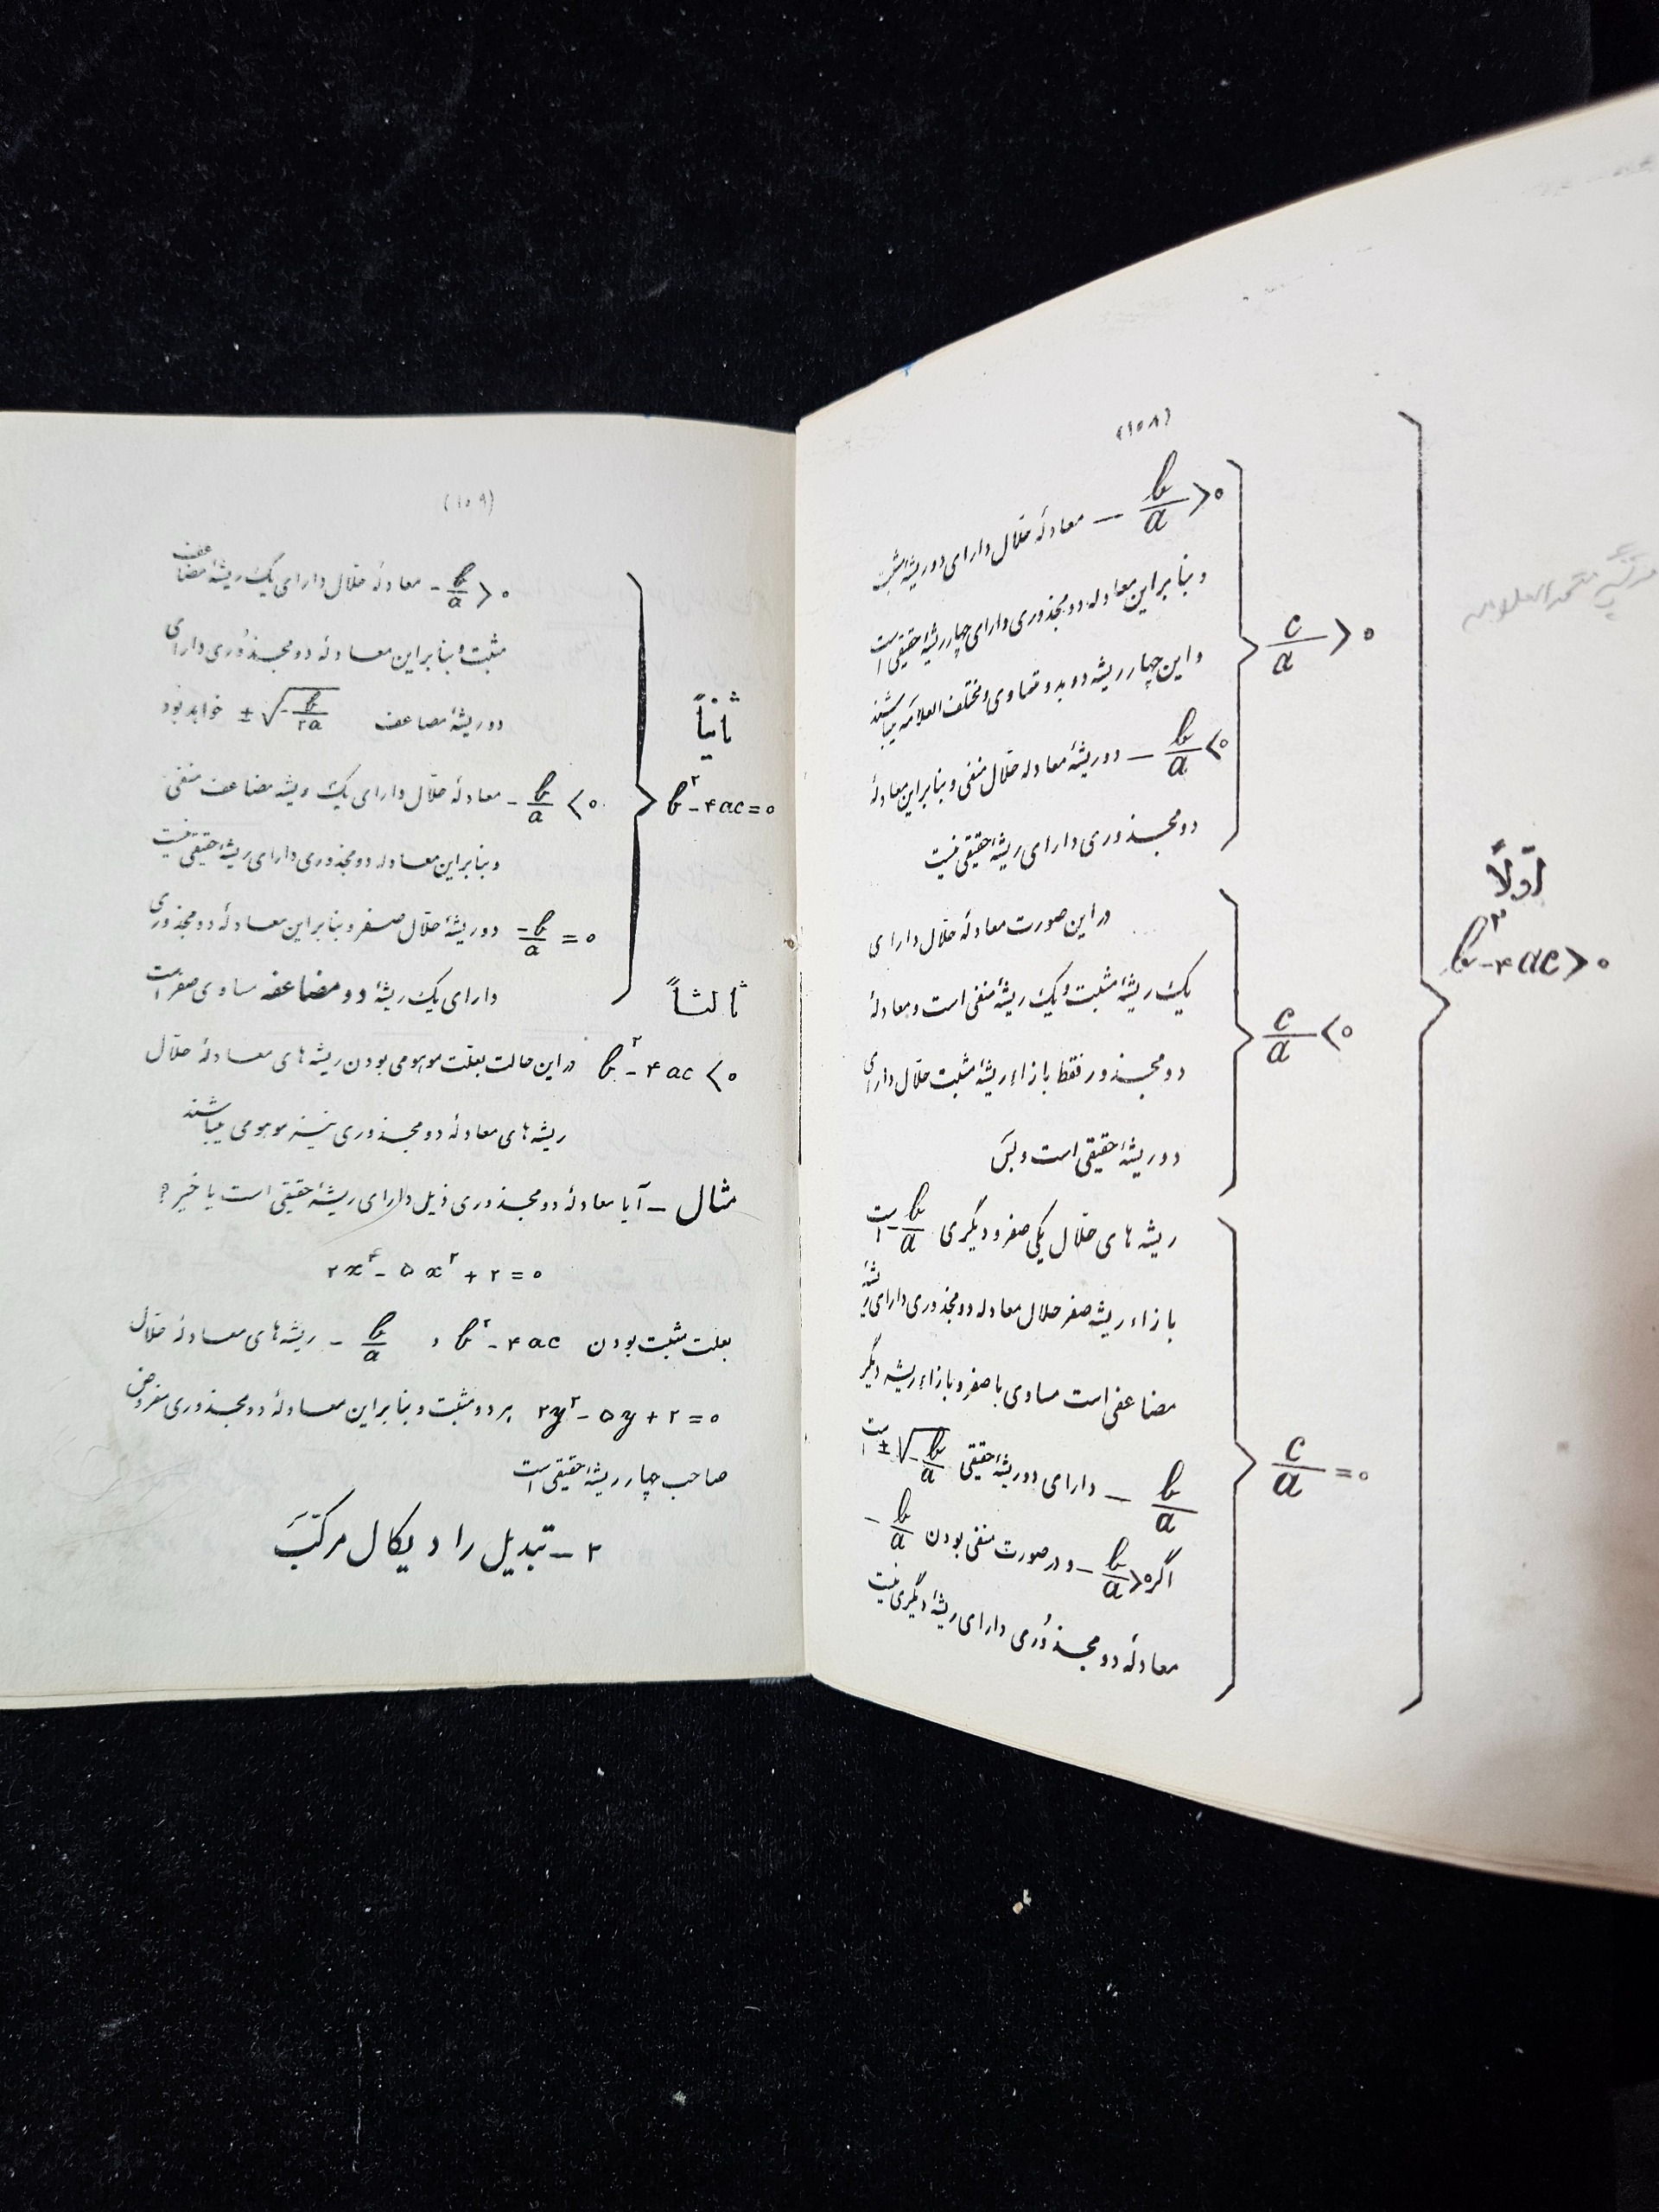 (۱۰۸)
اوّلاً
b۲-۴ac>۰
c/a >۰
-b/a >۰ معادلهٔ حلّال دارای دو ریشهٔ مثبت
و بنابراین معادله دو مجذوری دارای چهار ریشهٔ حقیقی است
و این چهار ریشه دو بدو متساوی و مختلف العلامه میباشند
-b/a <۰ دو ریشهٔ معادله حلّال منفی و بنابراین معادلهٔ
دو مجذوری دارای ریشهٔ حقیقی نیست
c/a <۰
در این صورت معادلهٔ حلّال دارای
یک ریشهٔ مثبت و یک ریشهٔ منفی است و معادلهٔ
دو مجذور فقط بازاء ریشهٔ مثبت حلّال دارای
دو ریشهٔ حقیقی است و بس
c/a =۰
ریشه های حلّال یکی صفر و دیگری -b/a است
بازاء ریشه صفر حلال معادله دو مجذوری دارای ریشهٔ
مضاعفی است مساوی با صفر و بازاء ریشه دیگر
-b/a دارای دو ریشهٔ حقیقی ±√-b/a است
اگر -b/a >۰ و در صورت منفی بودن -b/a
معادلهٔ دو مجذوری دارای ریشهٔ دیگری نیست
(۱۰۹)
ثانیاً
b۲-۴ac=۰
-b/a >۰ معادلهٔ حلّال دارای یک ریشهٔ مضاعف
مثبت و بنابراین معادلهٔ دو مجذوری دارای
دو ریشهٔ مضاعف ±√-b/۲a خواهد بود
-b/a <۰ معادلهٔ حلّال دارای یک ریشه مضاعف منفی
و بنابراین معادله دو مجذوری دارای ریشهٔ حقیقی نیست
-b/a =۰ دو ریشهٔ حلّال صفر و بنابراین معادلهٔ دو مجذوری
دارای یک ریشهٔ دو مضاعفه مساوی صفر است
ثالثاً
b۲-۴ac<۰ در این حالت بعلت موهومی بودن ریشه های معادلهٔ حلّال
ریشه های معادلهٔ دو مجذوری نیز موهومی میباشند
مثال - آیا معادلهٔ دو مجذوری ذیل دارای ریشهٔ حقیقی است یا خیر ؟
۲x۴-۵x۲+۲=۰
بعلت مثبت بودن b۲-۴ac و -b/a ریشه های معادلهٔ حلّال
۲y۲-۵y+۲=۰ هر دو مثبت و بنابراین معادلهٔ دو مجذوری مفروض
صاحب چهار ریشهٔ حقیقی است
۲ - تبدیل رادیکال مرکّب